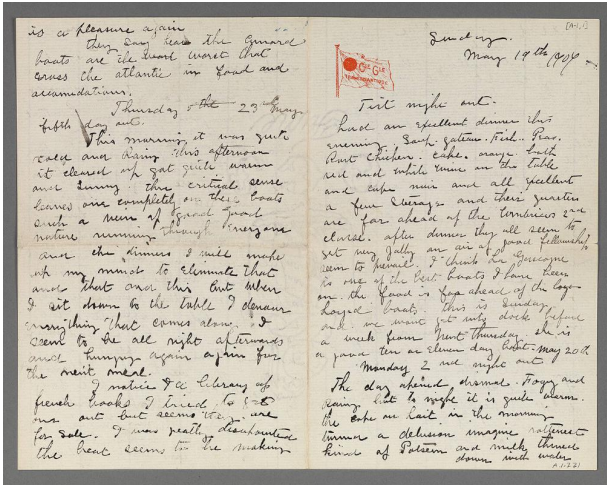 is a pleasure again
they say here the Cunard
boats are the worst that
cross the atlantic in food and
accomodations.
Thursday 23rd May
fifth day out.
This morning it was quite
and rainy this afternoon
it cleared up got quite warm
and sunny. the critical sense
leaves one completely on these boats
such a of good good
nature running through everyone
and the dinners I will make
up my mind to eliminate that
and that and this but when
I sit down to the table I devour
everything that comes along. I
seem to be all right afterwards
and hungry again again for
the next meal.
I notice a library of
french books I tried to get
one out but seems they are
for sale. I was greatly disapointed
the boat seems to be making
[A-1.1]
Sunday.
May 19th 1907
Cie Gle
TRANSATLANTIQUE
First night out.
had an excellent dinner this
evening Soup. gateau. Fish. Peas.
Roast Chicken. cake. orange both
red and white wine on the table
and cafe noir and all excellent
a few Steerage and their quarters
are far ahead of the 2nd
classe. after dinner they all seem to
get very jolly an air of good fellowship
seem to prevail. I think La Gascogne
is one of the best boats I have been
on. the food is far ahead of the
boats. this is Sunday
and we wont get into dock before
a week from next thursday. she is
a good ten or eleven day boat. May 20th
Monday 2nd night out
The day opened dismal. Foggy and
rainy but to night it is quite warm.
the cafe au lait in the morning
turned a delusion imagine rottenest
kind of Postum and milk thinned
down with water
A.1-221